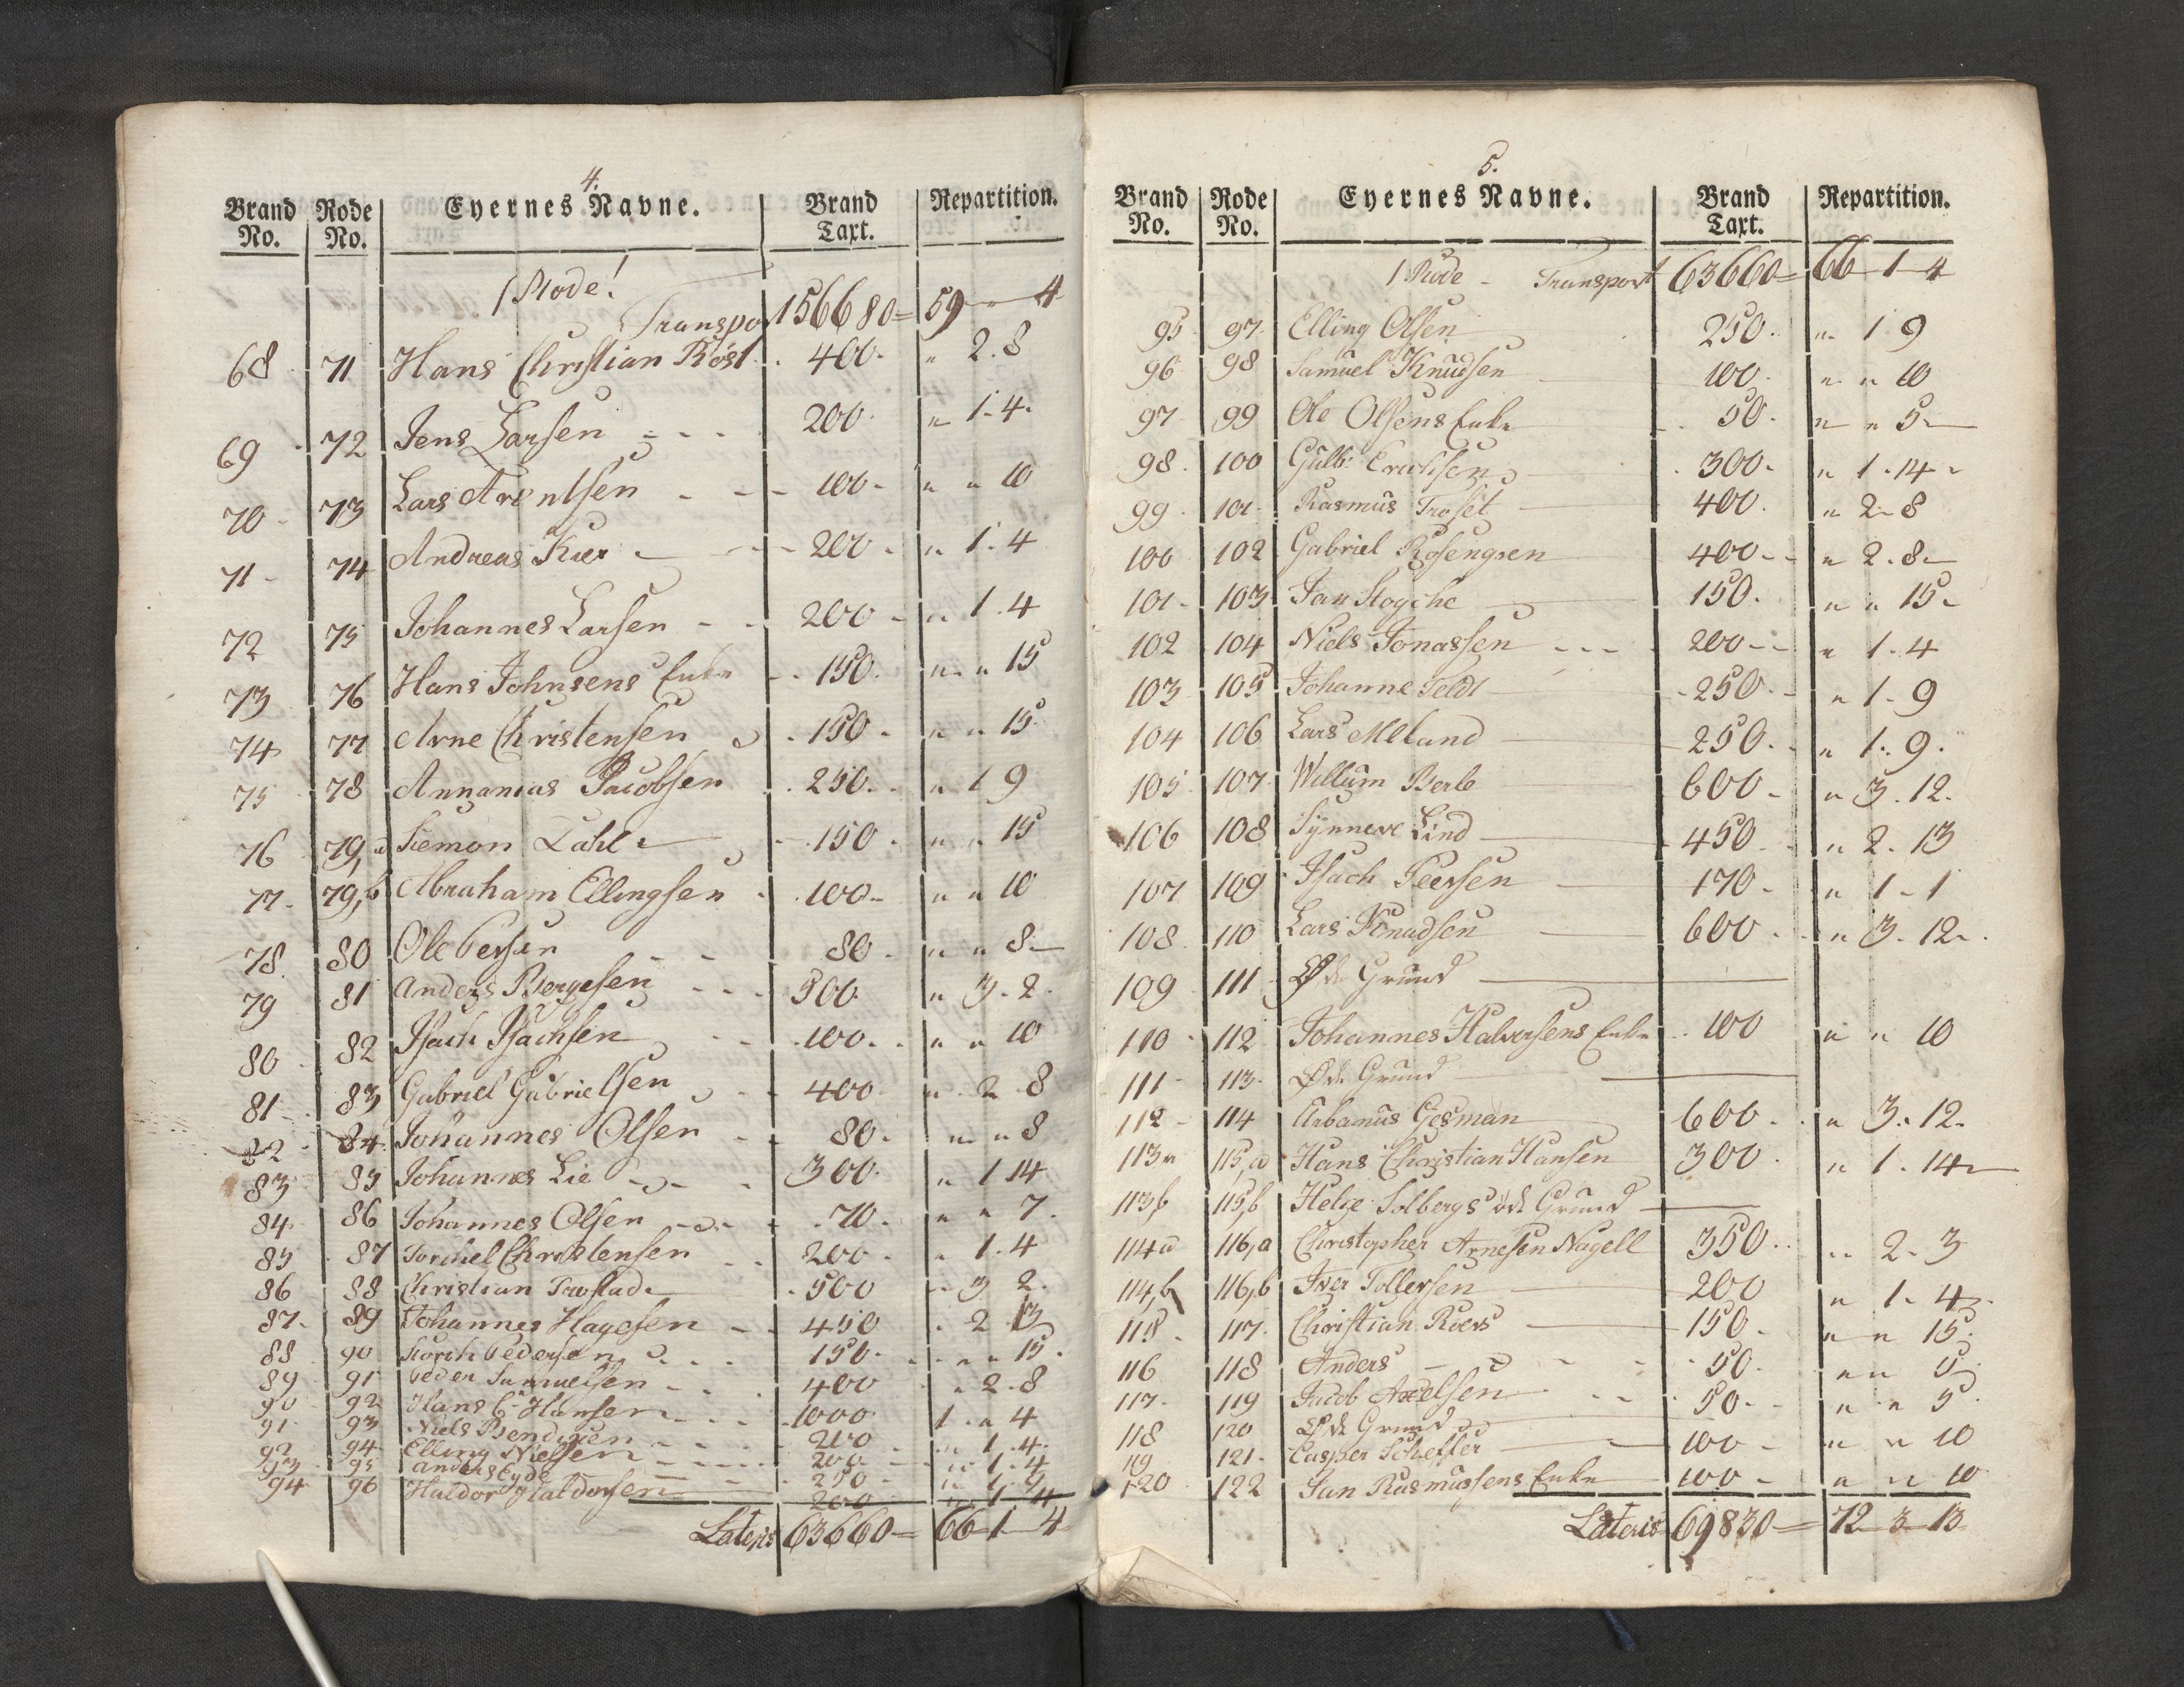 4.
Brand No. Rode No. Eyernes Navne. Brand Taxt. Repartition.
1 Rode!
Transport 56680= 59 " 4
68 71 Hans Christian Röst 400. " 2. 8
69 72 Jens Larsen 200. " 1. 4.
70 73 Lars Arentsen 100 " " 10
71 74 Andreas Kier 200 " 1. 4
72 75 Johannes Larsen 200 " 1. 4
73 76 Hans Johnsens Enke 150. " " 15
74 77 Arne Christensen 150 " " 15.
75 78 Annanias Jacobsen 250. " 1 9
76 79,a Siemon Dahl 150 " " 15
77 79,b Abraham Ellingsen 100 " " 10
78. 80 Ole Persen 80 " " 8
79 81 Anders Bergesen 500 " 3. 2.
80 82 Isach Isachsen 100. " " 10
81 83 Gabriel Gabrielsen 400 " 2. 8
82 84 Johannes Olsen 80. " " 8
83 85 Johannes Lie 300. " 1 14
84 86 Johannes Olsen 70. " " 7.
85 87 Torchel Christensen 200 " 1. 4
86 88 Christian 500 " 3 2.
87. 89 Johannes Hagesen 450 " 2 13
88 90 Storch Pedersen 150. " " 15.
89 91 Peder Samuelsen 400 " 2. 8
90 92 Hans C. Hansen 1000 1 " 4
91 93 Niels Bendixen 200 " 1. 4.
92 94 Elling Nielsen 200 " 1. 4
93 95 Anders Eyde 250 " 1. 9
94 96 Haldor Haldorsen 200 " 1 4
Lateris 63660= 66 1 4
5.
Brand No. Rode No. Eyernes Navne. Brand Taxt. Repartition.
1 Rode - Transport 63660= 66 1 4
95 97. Elling Olsen 250. " 1. 9
96 98 Samuel Knudsen 100. " " 10
97 99 Ole Olsens Enke 50. " " 5
98. 100 Gulb: Erichsen 300. " 1. 14
99 101. Rasmus Troset 400. " 2 8
100 102 Gabriel Rosengren 400 " 2. 8
101. 103 Jan 150. " " 15
102 104 Niels Jonassen 200 " 1. 4
103 105 Johanne Feldt 250. " 1. 9
104 106 Lars Meland 250. " 1. 9.
105 107. Willum Berle 600 " 3. 12.
106 108 Synneve Lind 450 " 2. 13
107 109 Isach Peersen 170 " 1 1
108. 110 Lars Knudsen 600 " 3. 12.
109 111 Øde Grund
110 112 Johannes Halversens Enke 100 " " 10
111 113. Øde Grund
112 114 Urbanus Gesman 600 " 3. 12.
113a 115,a Hans Christian Hansen 300. " 1. 14
113,b 115,b Helje Solbergs öde Grund
114a 116,a Christopher Arnesen Nagell 350 " 2. 3
114,b 116,b Iver Tollersen 200 " 1. 4
115 117. Christian Roers 150. " " 15.
116 118 Anders 50. " " 5
117. 119 Jacob Axelsen 50 " " 5.
118 120 Øde Grund
119 121. Casper Scheffler 100 " " 10
120 122 Jan Rasmussens Enke 100 " " 10
Lateris 69830= 72 3 13